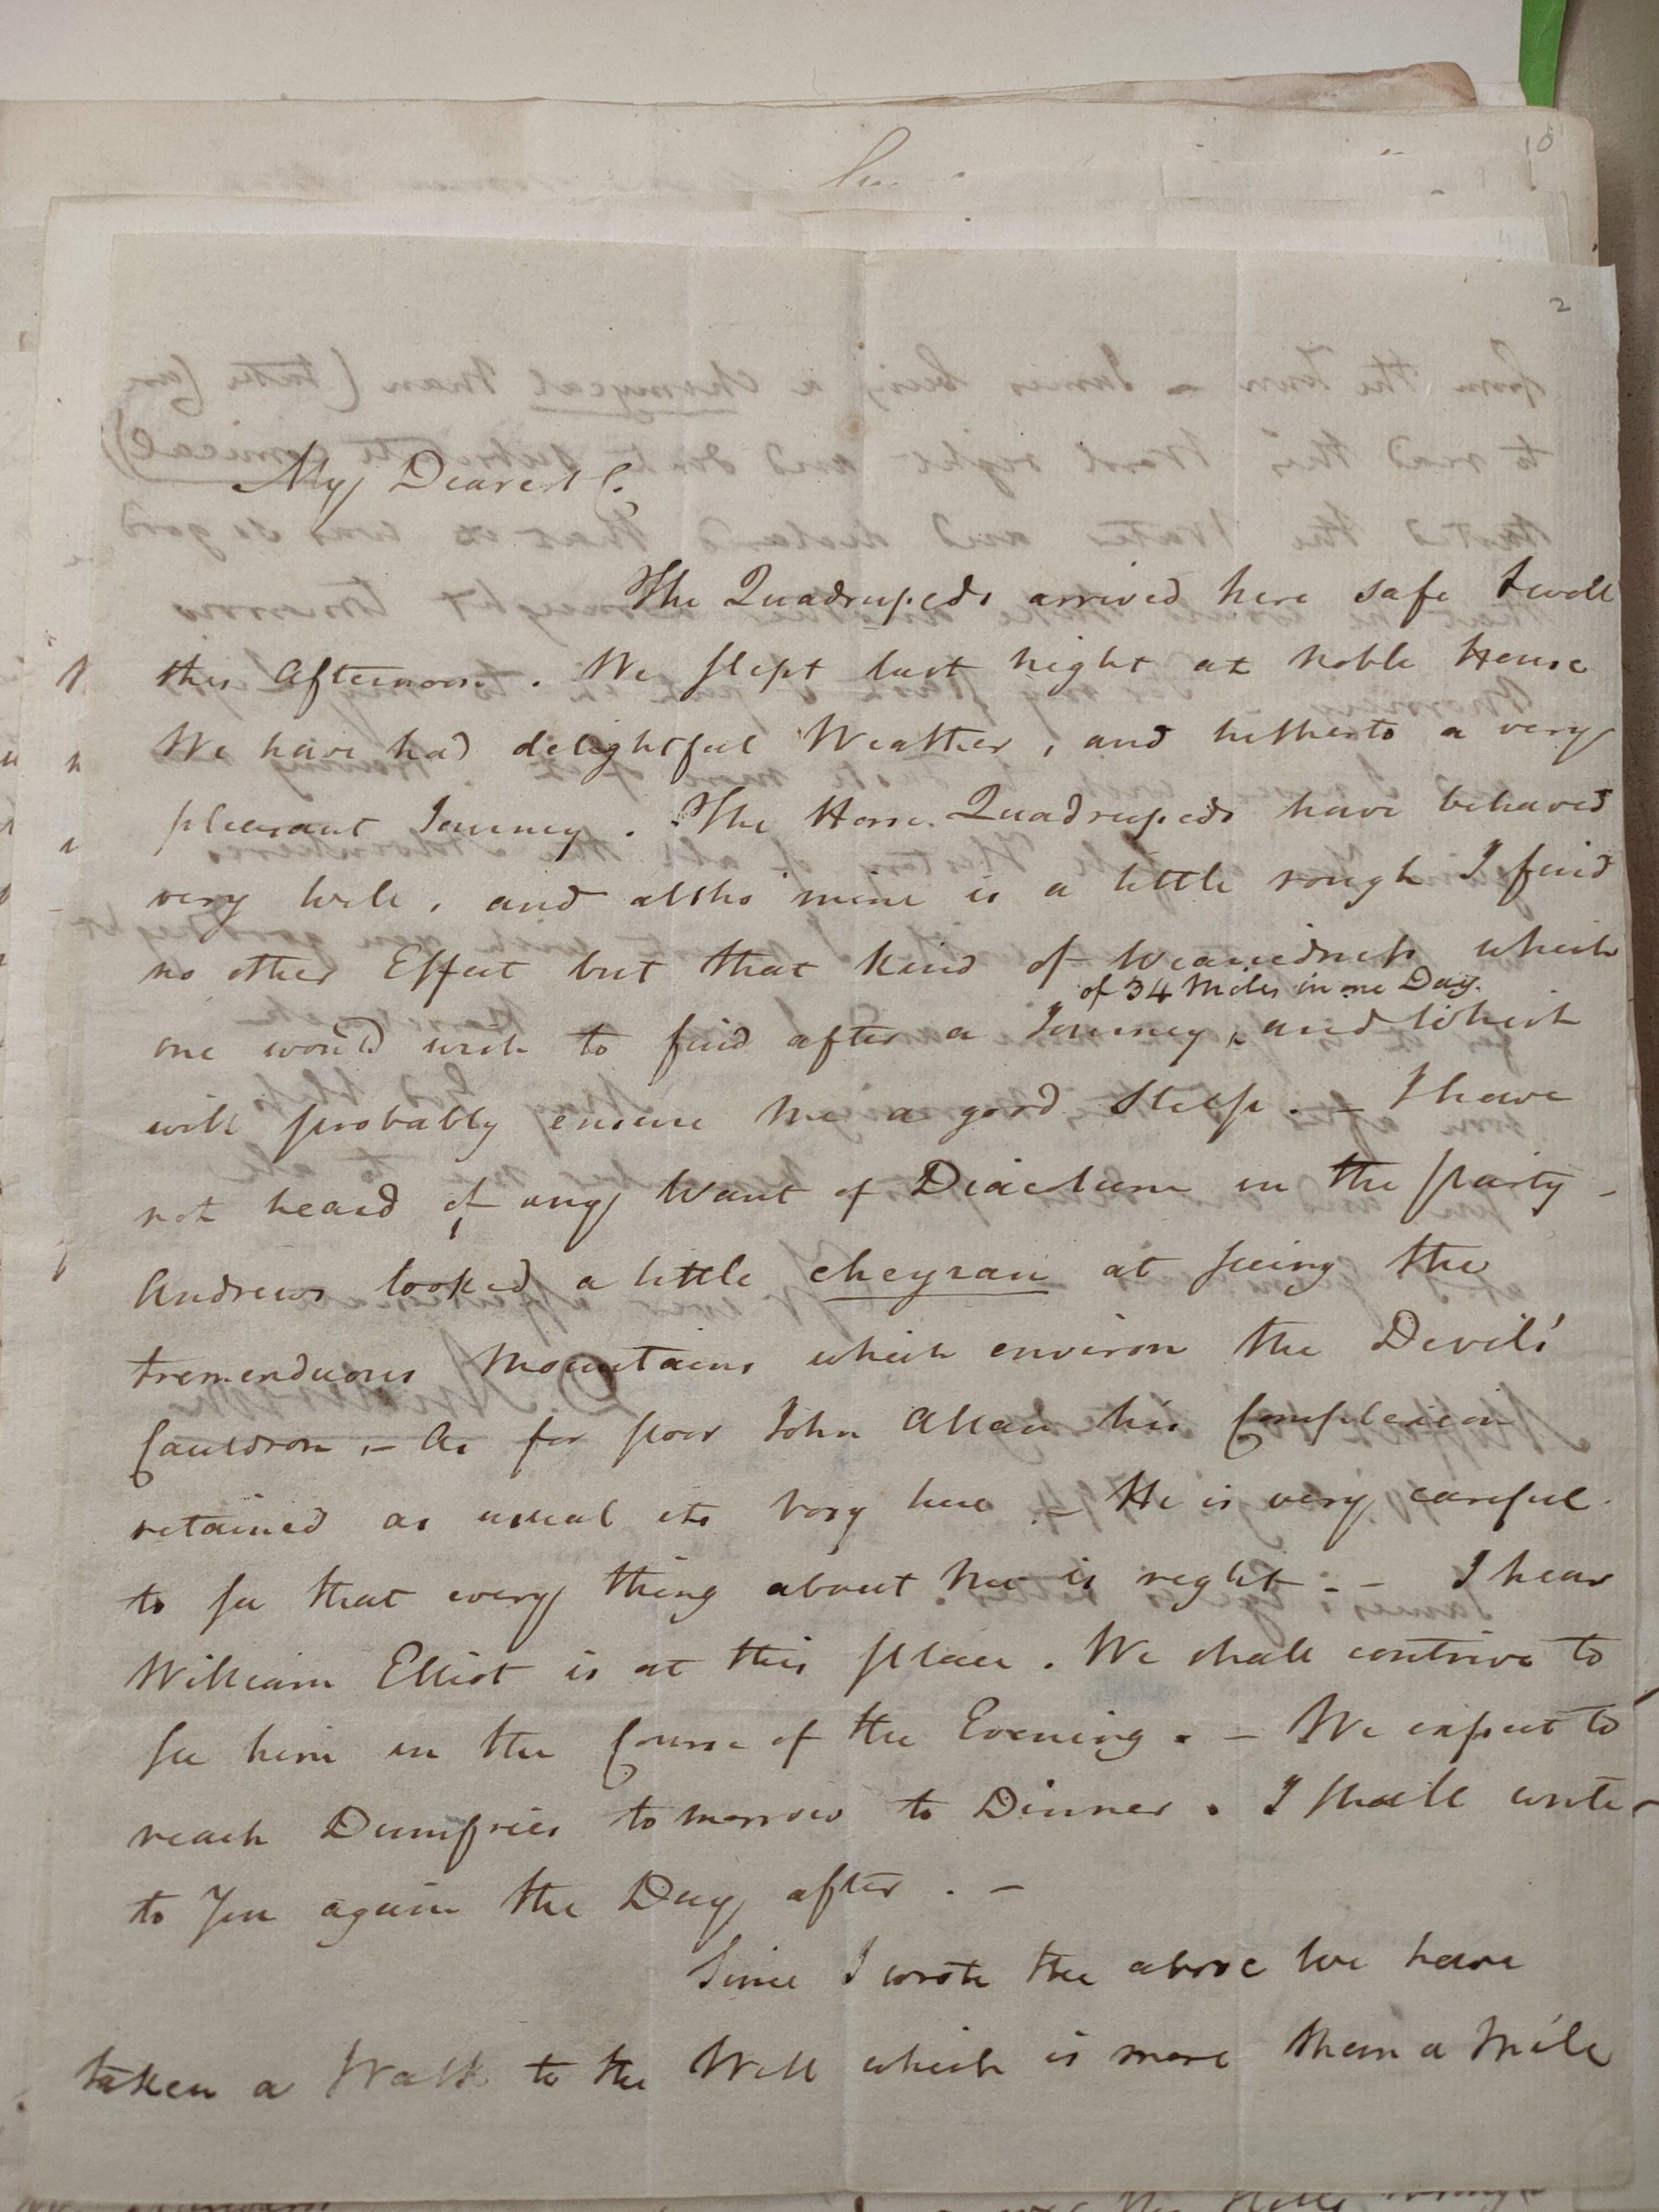 2
My Dearest C.
The Quadrupeds arrived here safe & well
this Afternoon. We slept last night at Noble House
We have had delightful Weather, and hitherto a very
pleasant Journey. The Horse Quadrupeds have behaved
very well, and altho' mine is a little rough I find
no other Effect but that kind of Weariedness which
of 34 Miles in one Day.
one would wish to find after a Journey, and which
will probably ensure me a good Sleep. – I have
not heard of any Want of Diaculum in the party –
Andrew looked a little cheyran at seeing the
tremenduous Mountains which environ the Devil's
Cauldron. – As for poor John Allan his Complexion
retained as usual its rosy hue. – He is very careful
to see that every thing about me is right. – I hear
William Elliot is at this place. We shall contrive to
see him in the Course of the Evening. – We expect to
reach Dumfries tomorrow to Dinner. I shall write
to You again the Day after. –
Since I wrote the above we have
taken a Walk to the Well which is more than a Mile